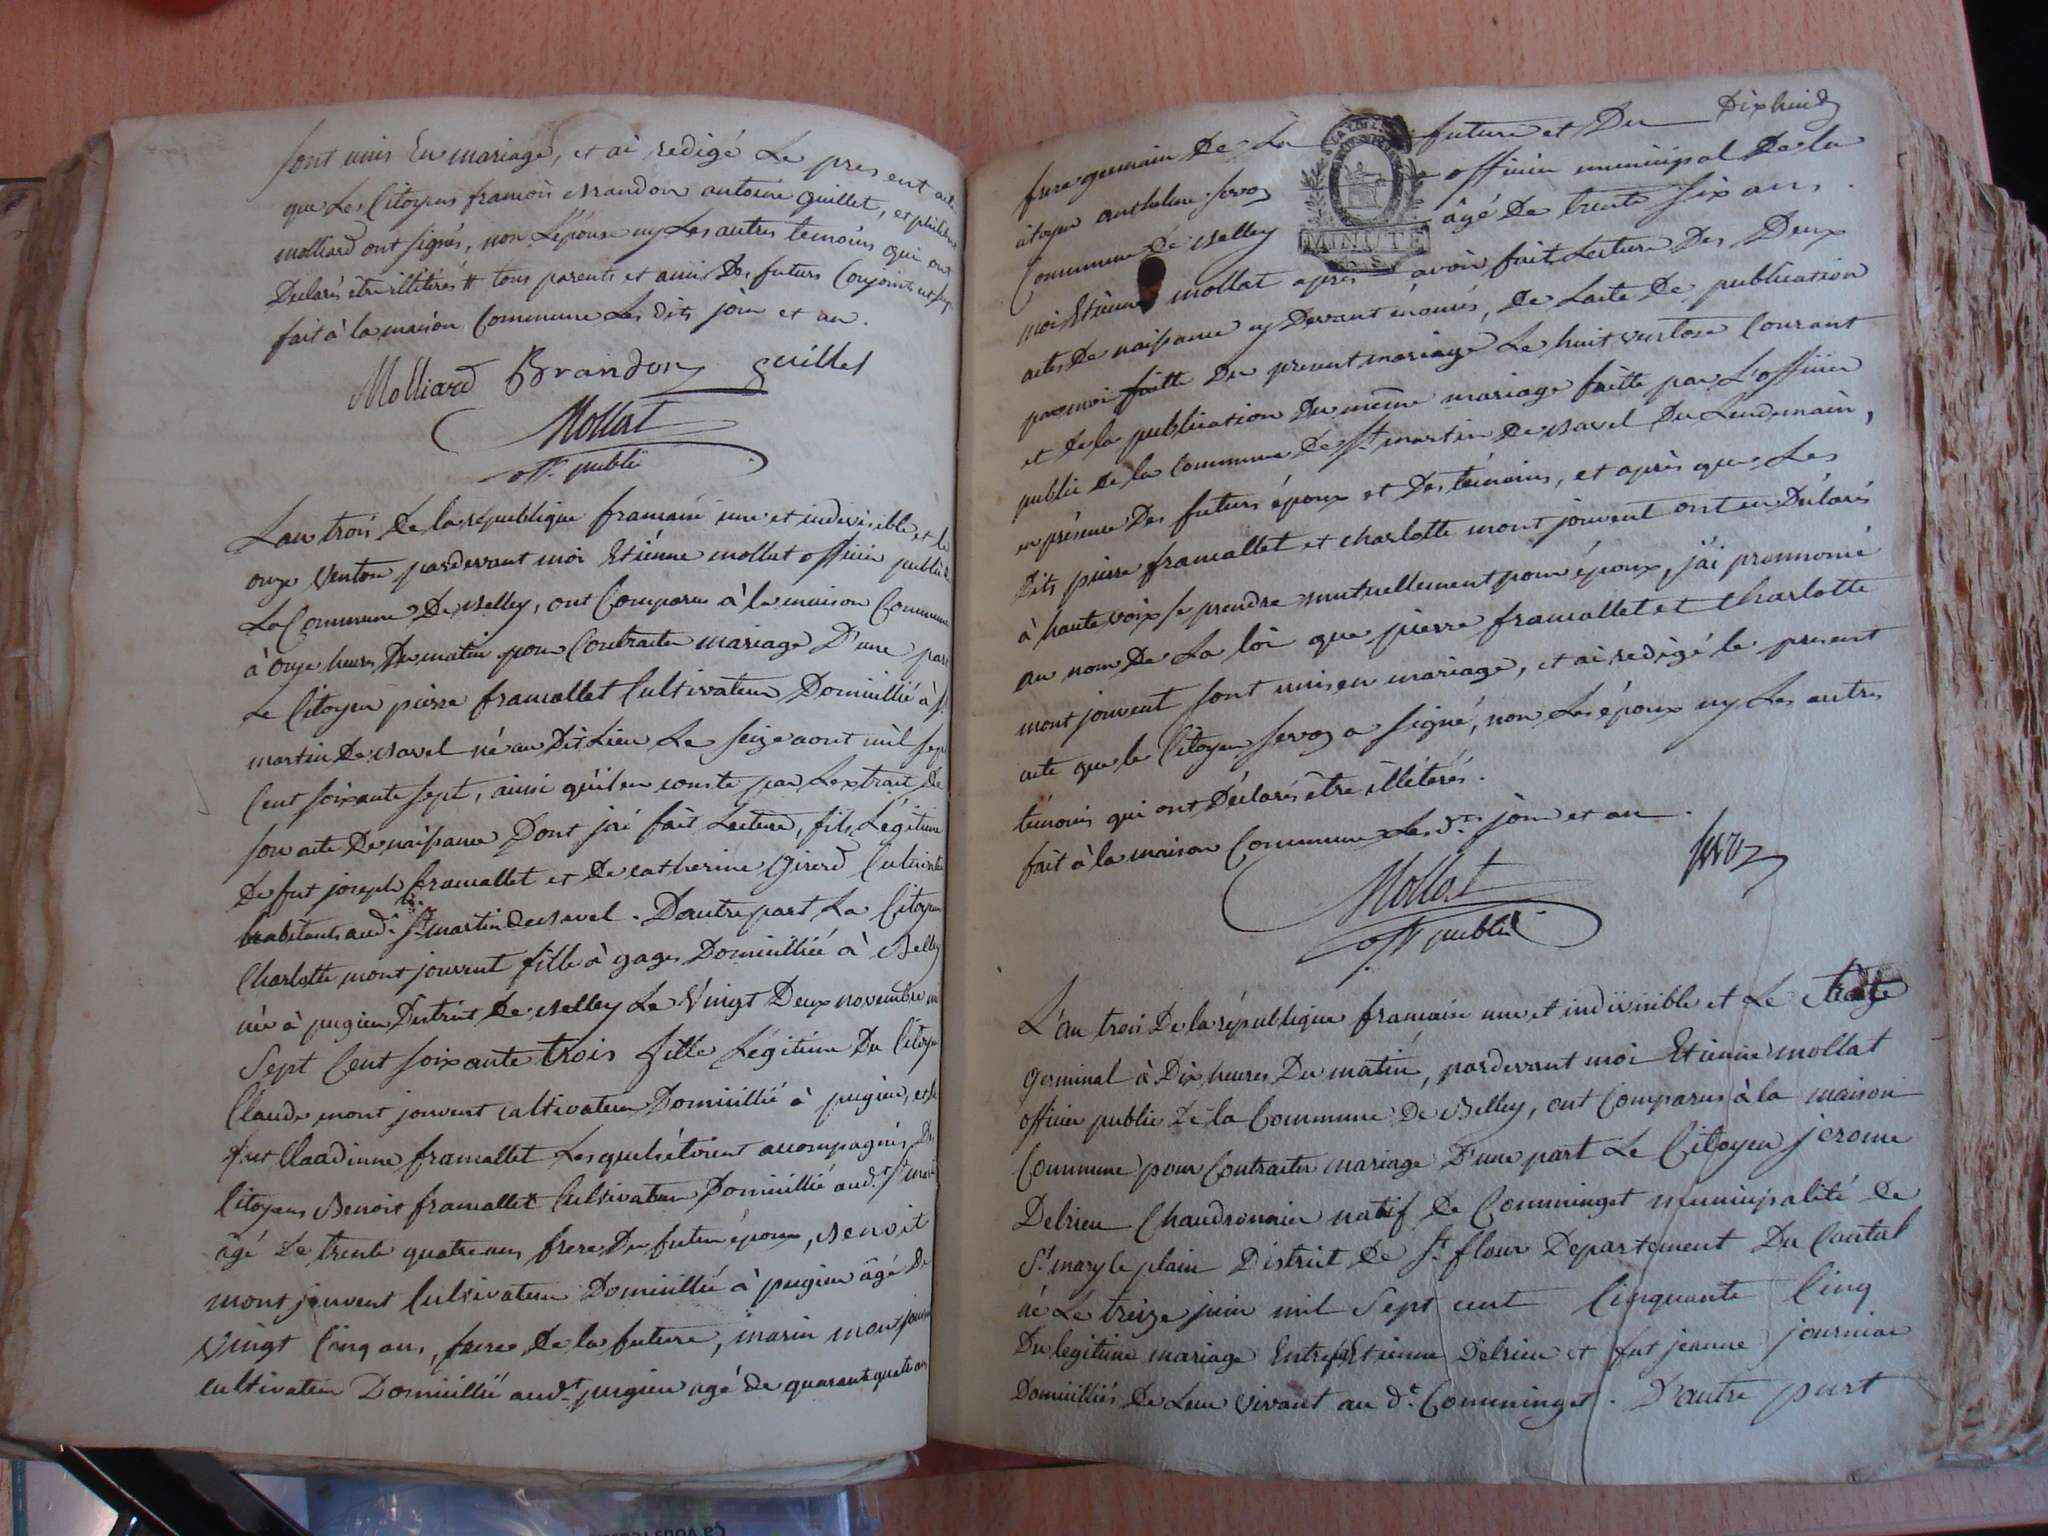 sont unis En mariage, et ai redigé Le present acte
que Les Citoyens francois Brandon antoine guillet, et
molliard ont signés, non L'épouse ny Les autres temoins qui ont
Declarés être illitérés # tous parents et amis Des futurs Conjoints
fait à la maison Commune Les dits jour et an.
Molliard Brandon guillet
Mollat
off. public
L'an trois De la république francaise une et indivisible, et le
onze Ventose pardevant moi Etiénne mollat officier public De
La Commune De Belley, ont Comparus à la maison Commune
à onze heures Du matin pour Contracter mariage D'une part
Le Citoyen pierre framallet Cultivateur Domicillié à St
martin De Bavel né au Dit Lieu Le seize aout mil sept
Cent soixante sept, ainsi qu'il en conste par L'extrait De
son acte De naissance Dont j'ai fait Lecture, fils Légitime
De fut joseph framallet et De catherine Girerd Cultivateurs
habitants aud. St martin de Bavel. D'autre part La Citoyenne
Charlotte mont jouvent fille à gages Domicilliée à Belley
née à pugieu District De Belley Le Vingt Deux novembre mil
Sept Cent soixante trois fille Légitime Du Citoyen
Claude mont jouvent cultivateur Domicillié à pugieu, et de
fut Claudinne framallet Lesquels étoient accompagnés Des
Citoyens Benoit framallet Cultivateur Domicillié aud. St martin
âgé De trente quatre ans frere Du futur époux, Benoit
mont jouvent Cultivateur Domicillié à pugieu âgé De
Vingt Cinq ans, frere De la future, marin mon jouvent
cultivateur Domicillié aud.t pugieu agé de quarante quatre ans
frere germain De La future et Du Dix huid
citoyen anthelme servoz officier municipal De la
Commune De Belley âgé De trente six ans.
MINUTE
moi Etiénne mollat apres avoir fait Lecture Des Deux
actes De naissance cy Devant énoncés, De L'acte De publication
par moi faitte Du present mariage Le huit ventose Courant
et de la publication Du même mariage faitte par L'officier
public De la commune De St martin De Bavel Du Lendemain,
en présence Des futurs époux et Des témoins, et après que Les
Dits pierre framallet et charlotte mont jouvent ont eu Déclarés
à haute voix se prendre mutuellement pour époux, j'ai prononcé
au nom De La loi que pierre framallet et Charlotte
mont jouvent sont unis en mariage, et ai redigé le present
acte que le Citoyen servoz a signé, non Les époux ny Les autres
témoins qui ont Déclarés être illétérés.
fait à la maison Commune Les d.ts jour et an.
servoz
Mollat
off. public
L'an trois De la république francaise une et indivisible et Le treize
Germinal à Dix heures Du matin, pardevant moi Etienne mollat
officier public De la Commune De Belley, ont Comparus à la maison
Commune pour Contracter mariage D'une part Le Citoyen jerome
Delrieu Chaudronnier natif De Comminget municipalité De
St mary le plain District De St flour Departement Du Cantal
né Le treize juin mil Sept cent Cinquante Cinq
Du legitime mariage Entre Etienne Delrieu et fut jeanne journiac
Domicilliés De Leur vivant au d.t Comminget. D'autre part